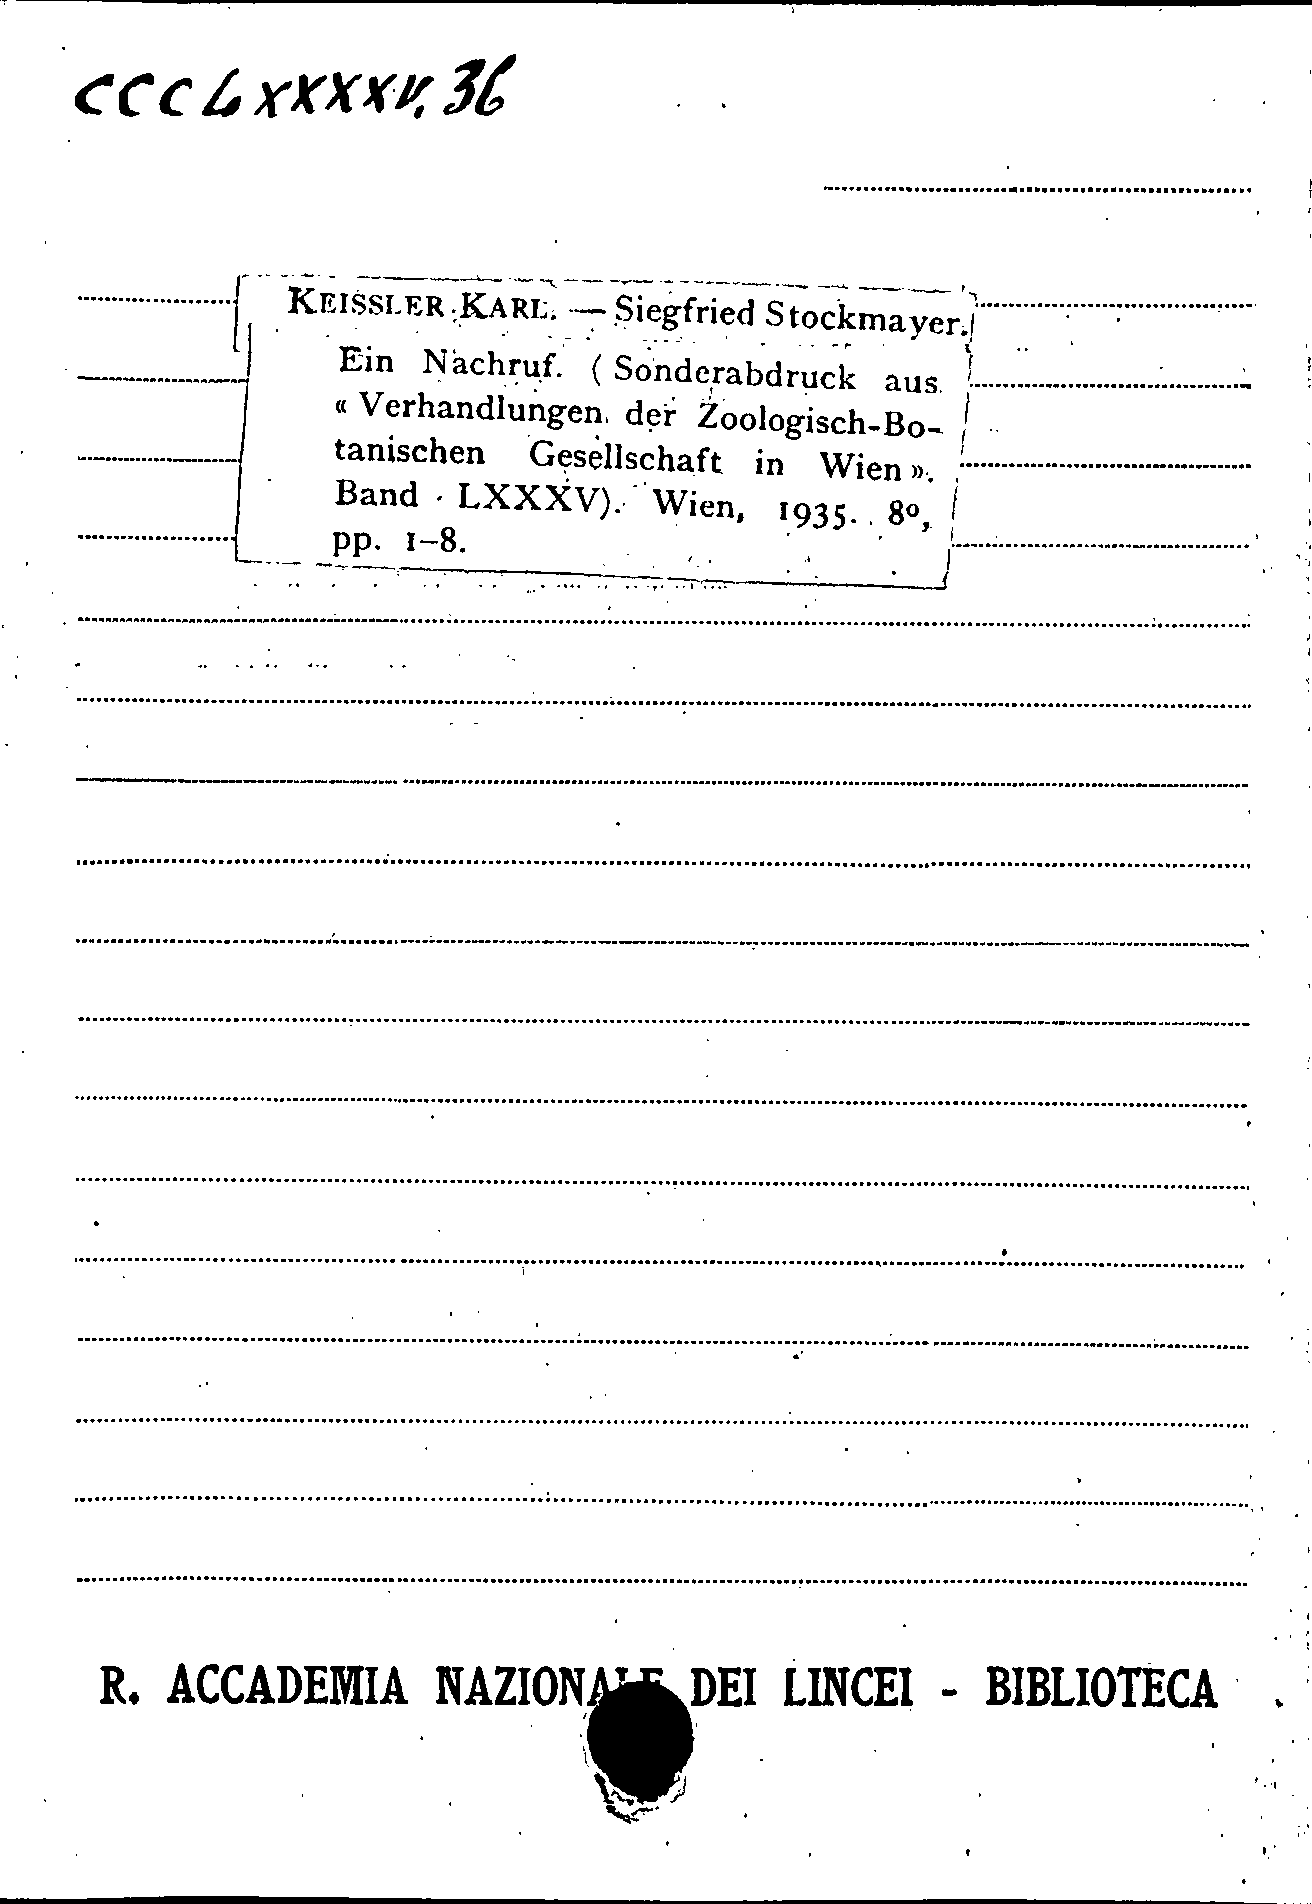 CCCLXXXXV, 36
KEISSLER KARL. — Siegfried Stockmayer.
Ein Nachruf. (Sonderabdruck aus
« Verhandlungen der Zoologisch-Bo-
tanischen Gesellschaft in Wien ».
Band LXXXV). Wien, 1935. 8º,
pp. 1-8.
R. ACCADEMIA NAZIONALE DEI LINCEI - BIBLIOTECA